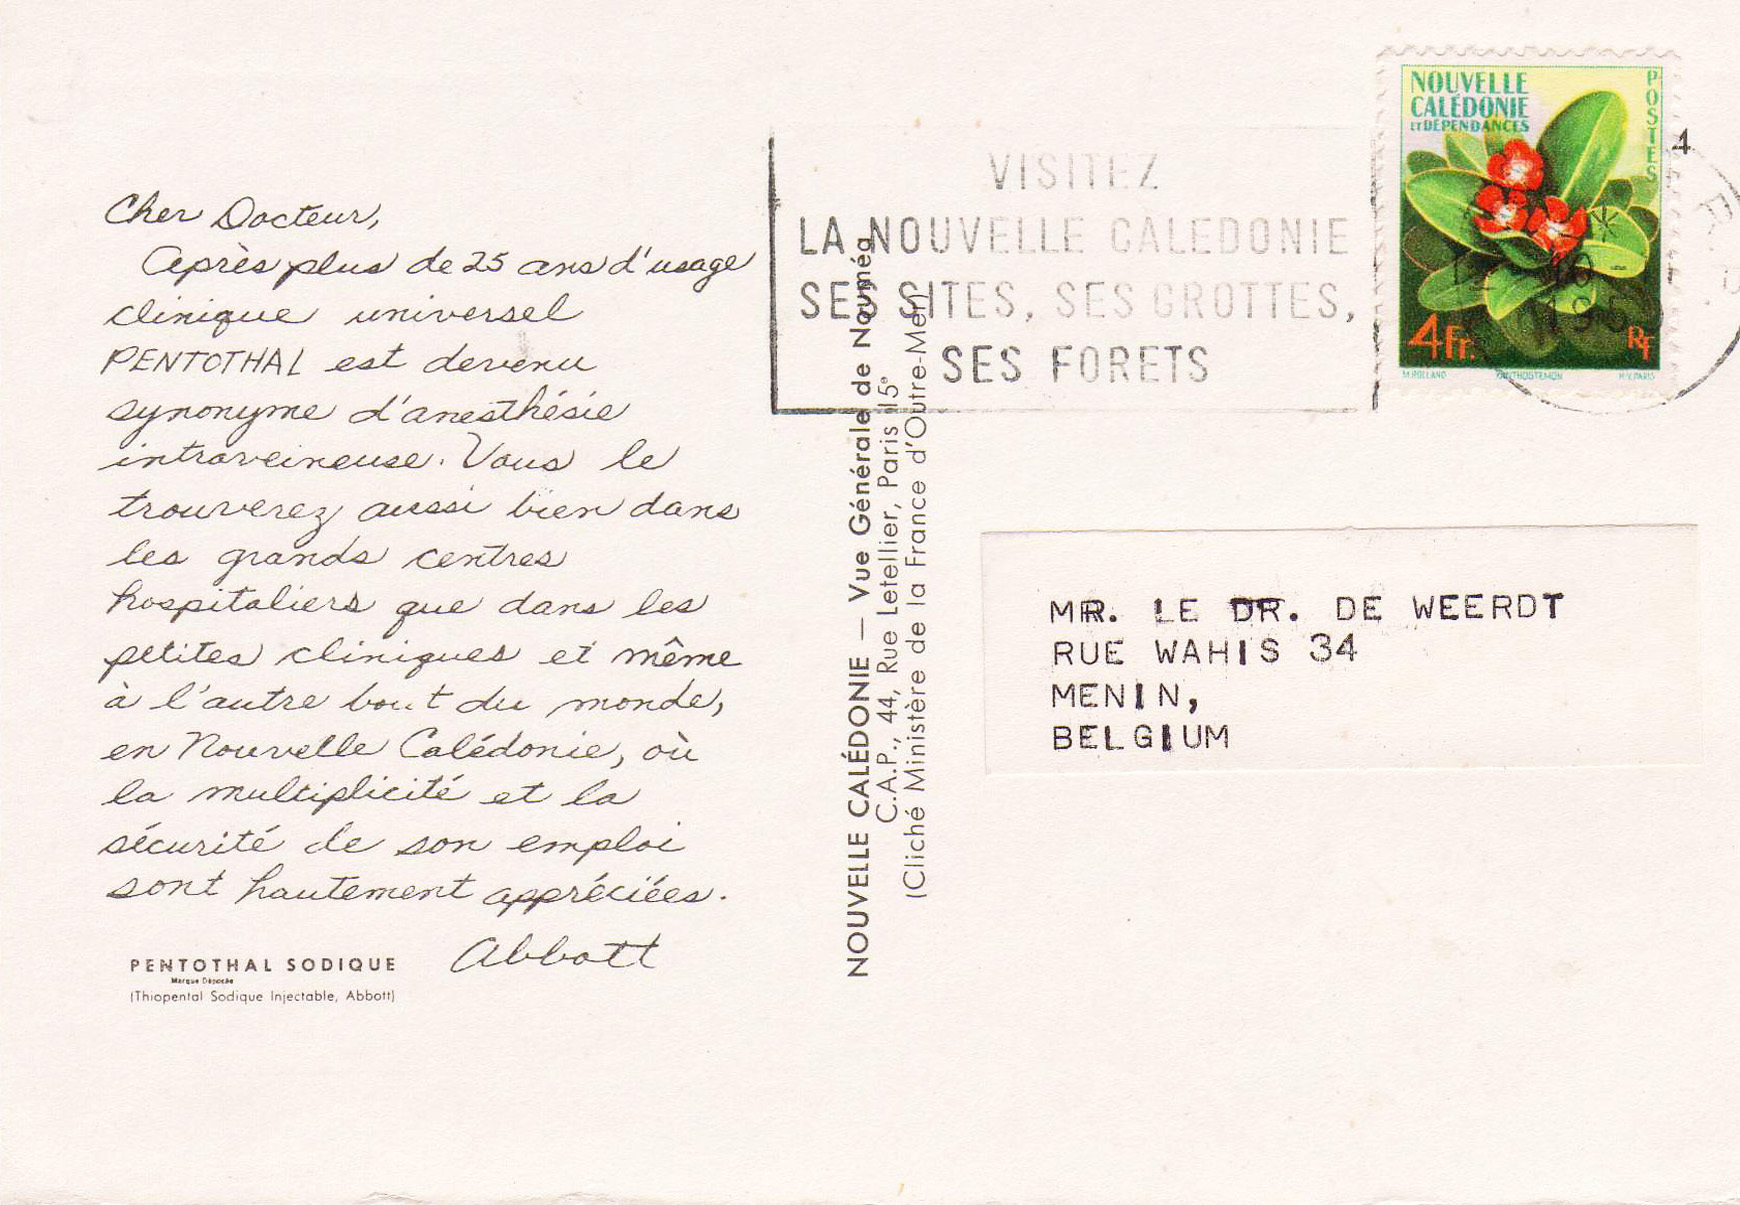 Cher Docteur,
Après plus de 25 ans d'usage
clinique universel
PENTOTHAL est devenu
synonyme d'anesthésie
intraveineuse. Vous le
trouverez aussi bien dans
les grands centres
hospitaliers que dans les
petites cliniques et même
à l'autre bout du monde,
en Nouvelle Calédonie, où
la multiplicité et la
sécurité de son emploi
sont hautement appréciées.
Abbott
PENTOTHAL SODIQUE
Marque Déposée
(Thiopental Sodique Injectable, Abbott)
NOUVELLE CALÉDONIE — Vue Générale de Nouméa
C.A.P., 44, Rue Letellier, Paris 15e
(Cliché Ministère de la France d'Outre-Mer)
VISITEZ
LA NOUVELLE CALEDONIE
SES SITES, SES GROTTES,
SES FORETS
NOUVELLE
CALÉDONIE
ET DÉPENDANCES
POSTES
4Fr.
RF
M.ROLLAND XANTHOSTEMON H.V.PARIS
4
MR. LE DR. DE WEERDT
RUE WAHIS 34
MENIN,
BELGIUM